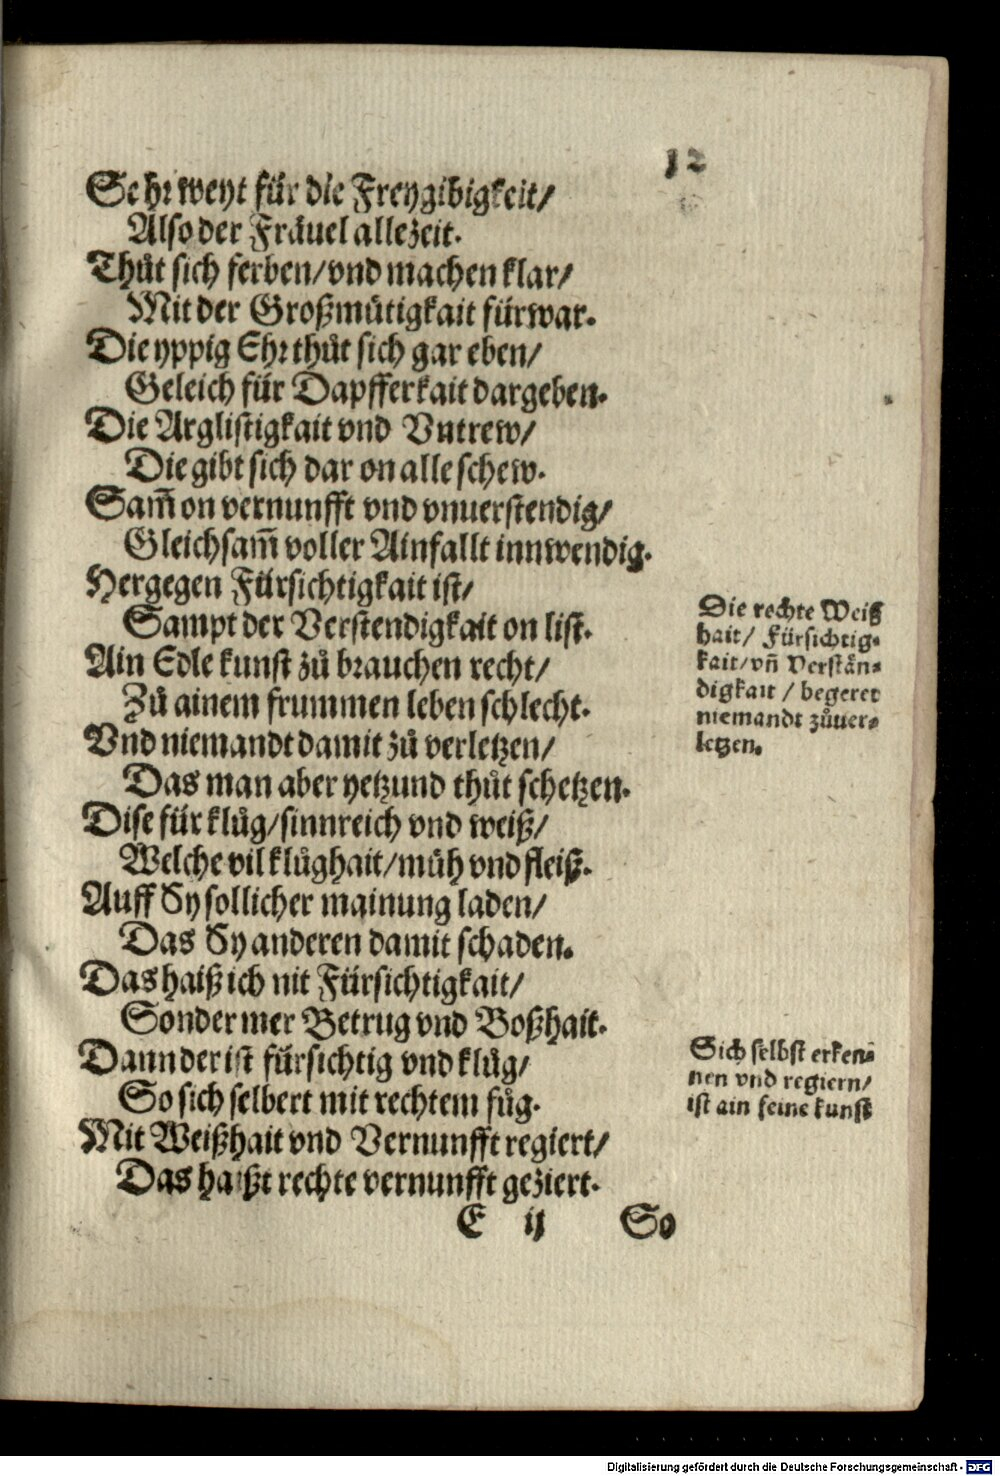 12
Sehr weyt für die Freygibigkeit/
Also der Fräuel allezeit.
Thůt sich ferben/vnd machen klar/
Mit der Großmütigkait fürwar.
Die yppig Ehr thůt sich gar eben/
Geleich für Dapfferkait dargeben.
Die Arglistigkait vnd Vntrew/
Die gibt sich dar on alle schew.
Sam̃ on vernunfft vnd vnuerstendig/
Gleichsam̃ voller Ainfallt innwendig.
Hergegen Fürsichtigkait ist/
Sampt der Verstendigkait on list.
Ain Edle kunst zů brauchen recht/
Zů ainem frummen leben schlecht.
Vnd niemandt damit zů verletzen/
Das man aber yetzund thůt schetzen.
Dise für klůg/sinnreich vnd weiß/
Welche vil klůghait/müh vnd fleiß.
Auff Sy sollicher mainung laden/
Das Sy anderen damit schaden.
Das haiß ich nit Fürsichtigkait/
Sonder mer Betrug vnd Boßhait.
Dann der ist fürsichtig vnd klůg/
So sich selbert mit rechtem fůg.
Mit Weißhait vnd Vernunfft regiert/
Das haißt rechte vernunfft geziert.
E ij So
Die rechte Weiß
hait/ Fürsichtig-
kait/vn̄ Verstän-
digkait / begeret
niemandt zůuer-
letzen.
Sich selbst erken-
nen vnd regiern/
ist ain feine kunst
Digitalisierung gefördert durch die Deutsche Forschungsgemeinschaft - DFG